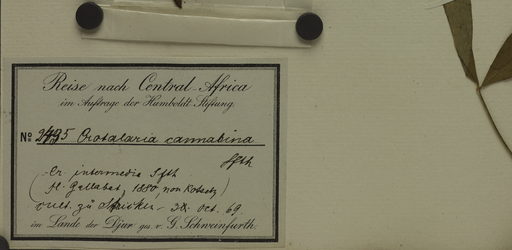 Reise nach Central-Afrika
im Auftrage der Humboldt-Stiftung.
No. 2495 Crotalaria cannabina
Sfth
Cr. intermedia Sfth
(pl. Gallabat, 1880, non Kotschy)
cult. zu 3. Oct. 69
im Lande der Djur ges. v. G. Schweinfurth.